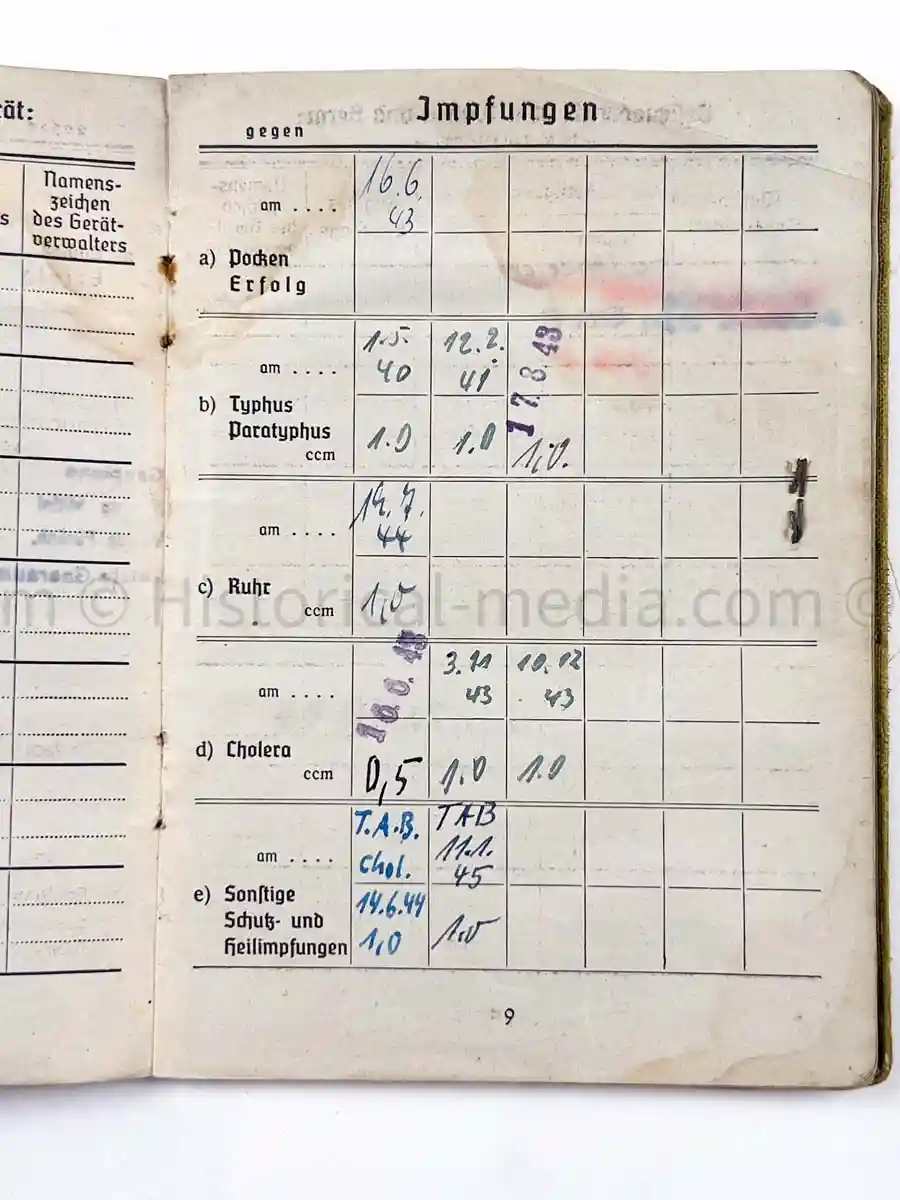 ät:
Namens-
zeichen
des Gerät-
verwalters
s
Impfungen
gegen
am ....
16.6.
43
a) Pocken
Erfolg
am ....
1.5.
40
12.2.
41
17.8.43
b) Typhus
Paratyphus
ccm
1.0
1.0
1,0.
am ....
14.7.
44
c) Ruhr
ccm
1,0
m © Historical-media.com ©
am ....
3.11
43
10.12
43
d) Cholera
ccm
0,5
1.0
1.0
am ....
T.A.B.
Chol.
14.6.44
1,0
TAB
11.1.
45
1.0
e) Sonstige
Schutz- und
Heilimpfungen
9